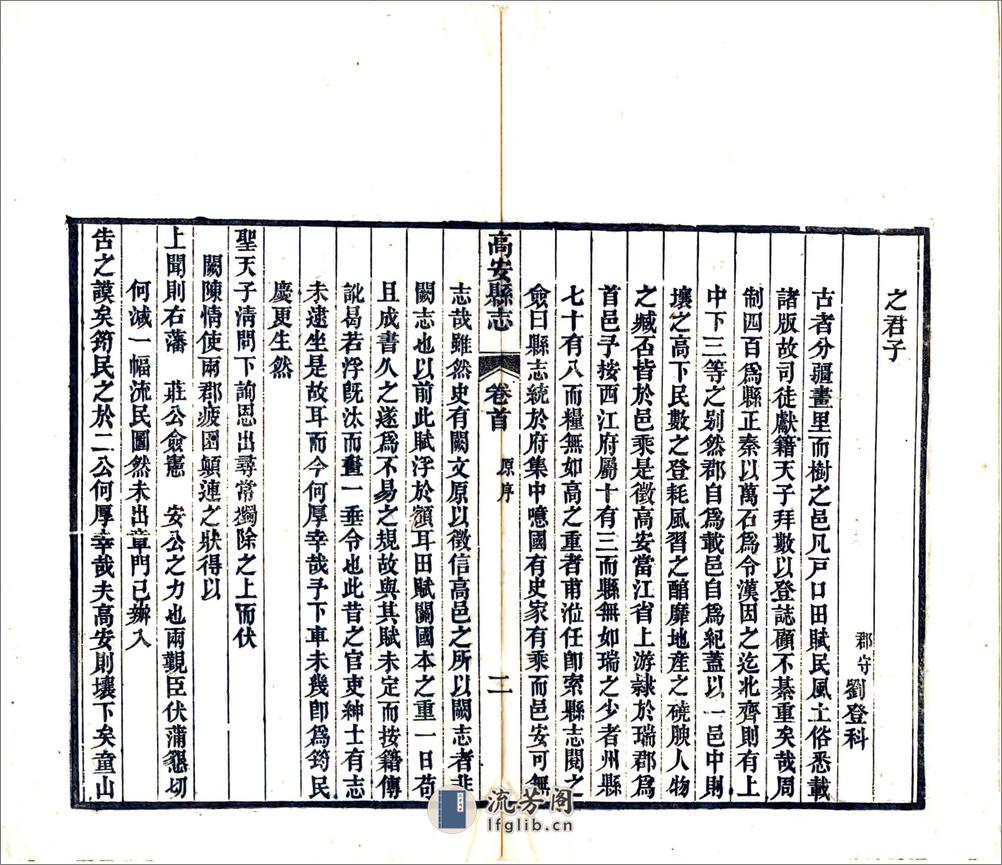 之君子
郡守劉登科
古者分疆畫里而樹之邑凡戸口田賦民風土俗悉載
諸版故司徒獻籍天子拜數以登誌顧不綦重矣哉周
制四百爲縣正秦以萬石爲令漢因之迄北齊則有上
中下三等之别然郡自爲載邑自爲紀蓋以一邑中則
壤之高下民數之登耗風習之醕靡地産之磽腴人物
之臧否皆於邑乘是徵高安當江省上游隷於瑞郡爲
首邑予按西江府屬十有三而縣無如瑞之少者州縣
七十有八而糧無如高之重者甫涖任卽索縣志閱之
僉曰縣志統於府集中噫國有史家有乘而邑安可無
高安縣志
卷首
原序
二
志哉雖然史有闕文原以徵信高邑之所以闕志者非
闕志也以前此賦浮於額耳田賦關國本之重一日苟
且成書久之遂爲不易之規故與其賦未定而按籍傳
訛曷若浮旣汰而畫一垂令也此昔之官吏紳士有志
未逮坐是故耳而今何厚幸哉予下車未幾卽爲筠民
慶更生然
聖天子清問下詢恩出尋常獨除之上而伏
闕陳情使兩郡疲圉顛連之狀得以
上聞則右藩 莊公僉憲 安公之力也兩覲臣伏蒲懇切
何減一幅流民圖然未出章門已辦入
告之謨矣筠民之於二公何厚幸哉夫高安則壤下矣童山
流芳阁
lfglib.cn